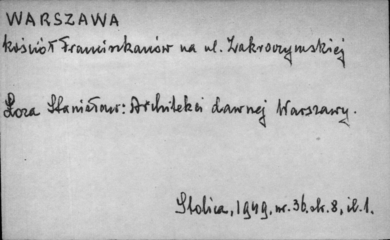 WARSZAWA
kościół Franciszkanów na ul. Zakroczymskiej
Łoza Stanisław: Architekci dawnej Warszawy.
Stolica, 1949, nr. 36. str. 8, il. 1.